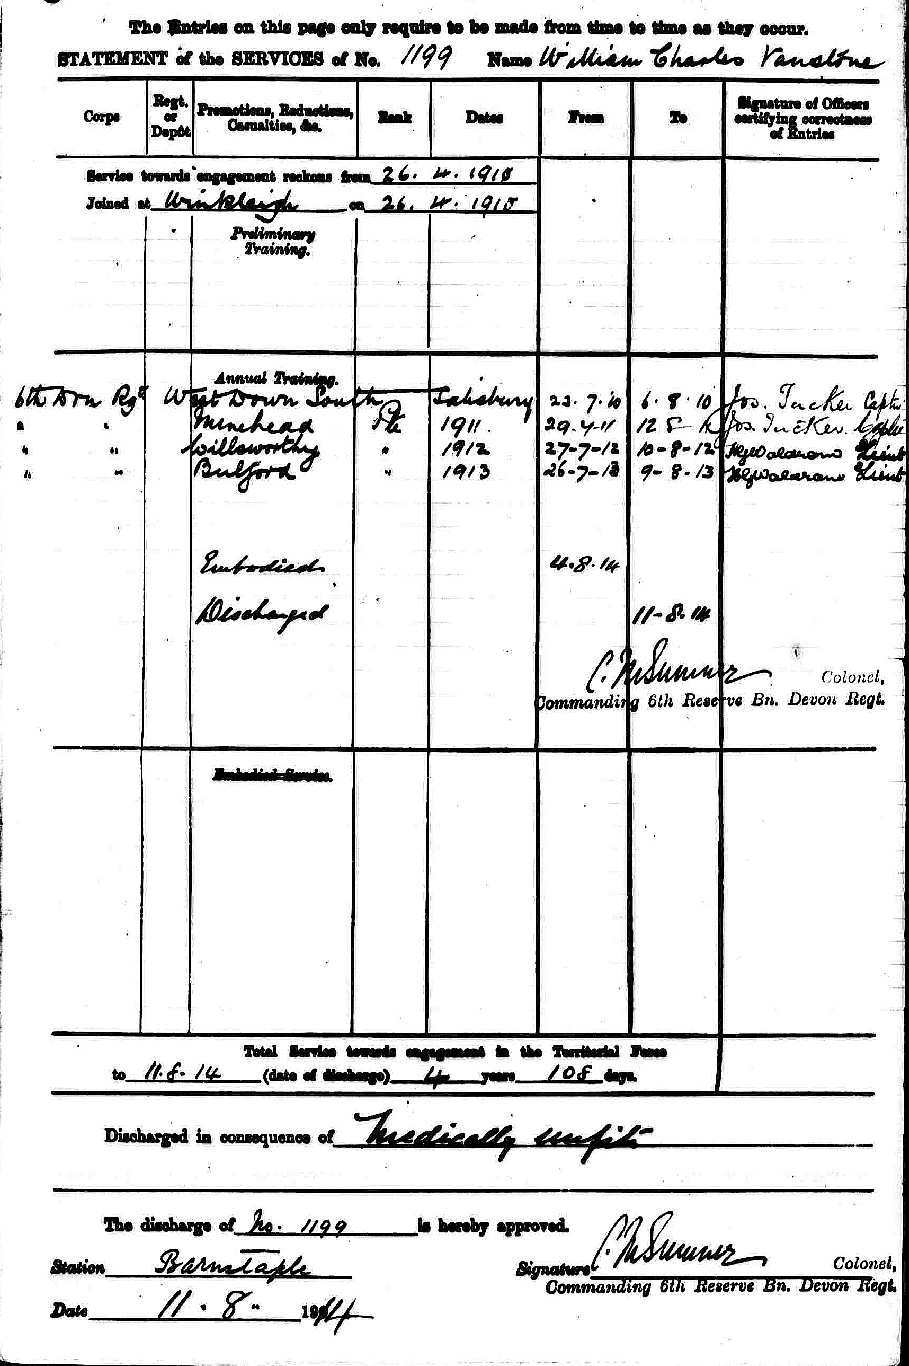 The Entries on this page only require to be made from time to time as they occur.
STATEMENT of the SERVICES of No. 1199 Name William Charles Vanstone
Corps Regt. or Depôt Promotions, Reductions, Casualties, &c. Rank Dates From To Signature of Officers certifying correctness of Entries
Service towards engagement reckons from 26. 4. 1910
Joined at Winkleigh on 26. 4. 1910
Preliminary
Training.
Annual Training.
6th Dvn Rgt West Down South Salisbury 23. 7. 10 6. 8. 10 Jos. Tucker Captn
" " Minehead Pte 1911. 29.7.11 12 8 Jos. Tucker. Captn
" " Willsworthy " 1912 27-7-12 10-8-12 Lieut
" " Bulford " 1913 26-7-13 9-8-13 Lieut
Embodied 4.8.14
Discharged 11-8.14
C. M Sumner Colonel,
Commanding 6th Reserve Bn. Devon Regt.
Embodied Service.
Total Service towards engagement in the Territorial Force
to 11.8.14 (date of discharge) 4 years 108 days.
Discharged in consequence of Medically unfit
The discharge of No. 1199 is hereby approved.
Station Barnstaple Signature C. M Sumner Colonel,
Commanding 6th Reserve Bn. Devon Regt.
Date 11. 8. 1914